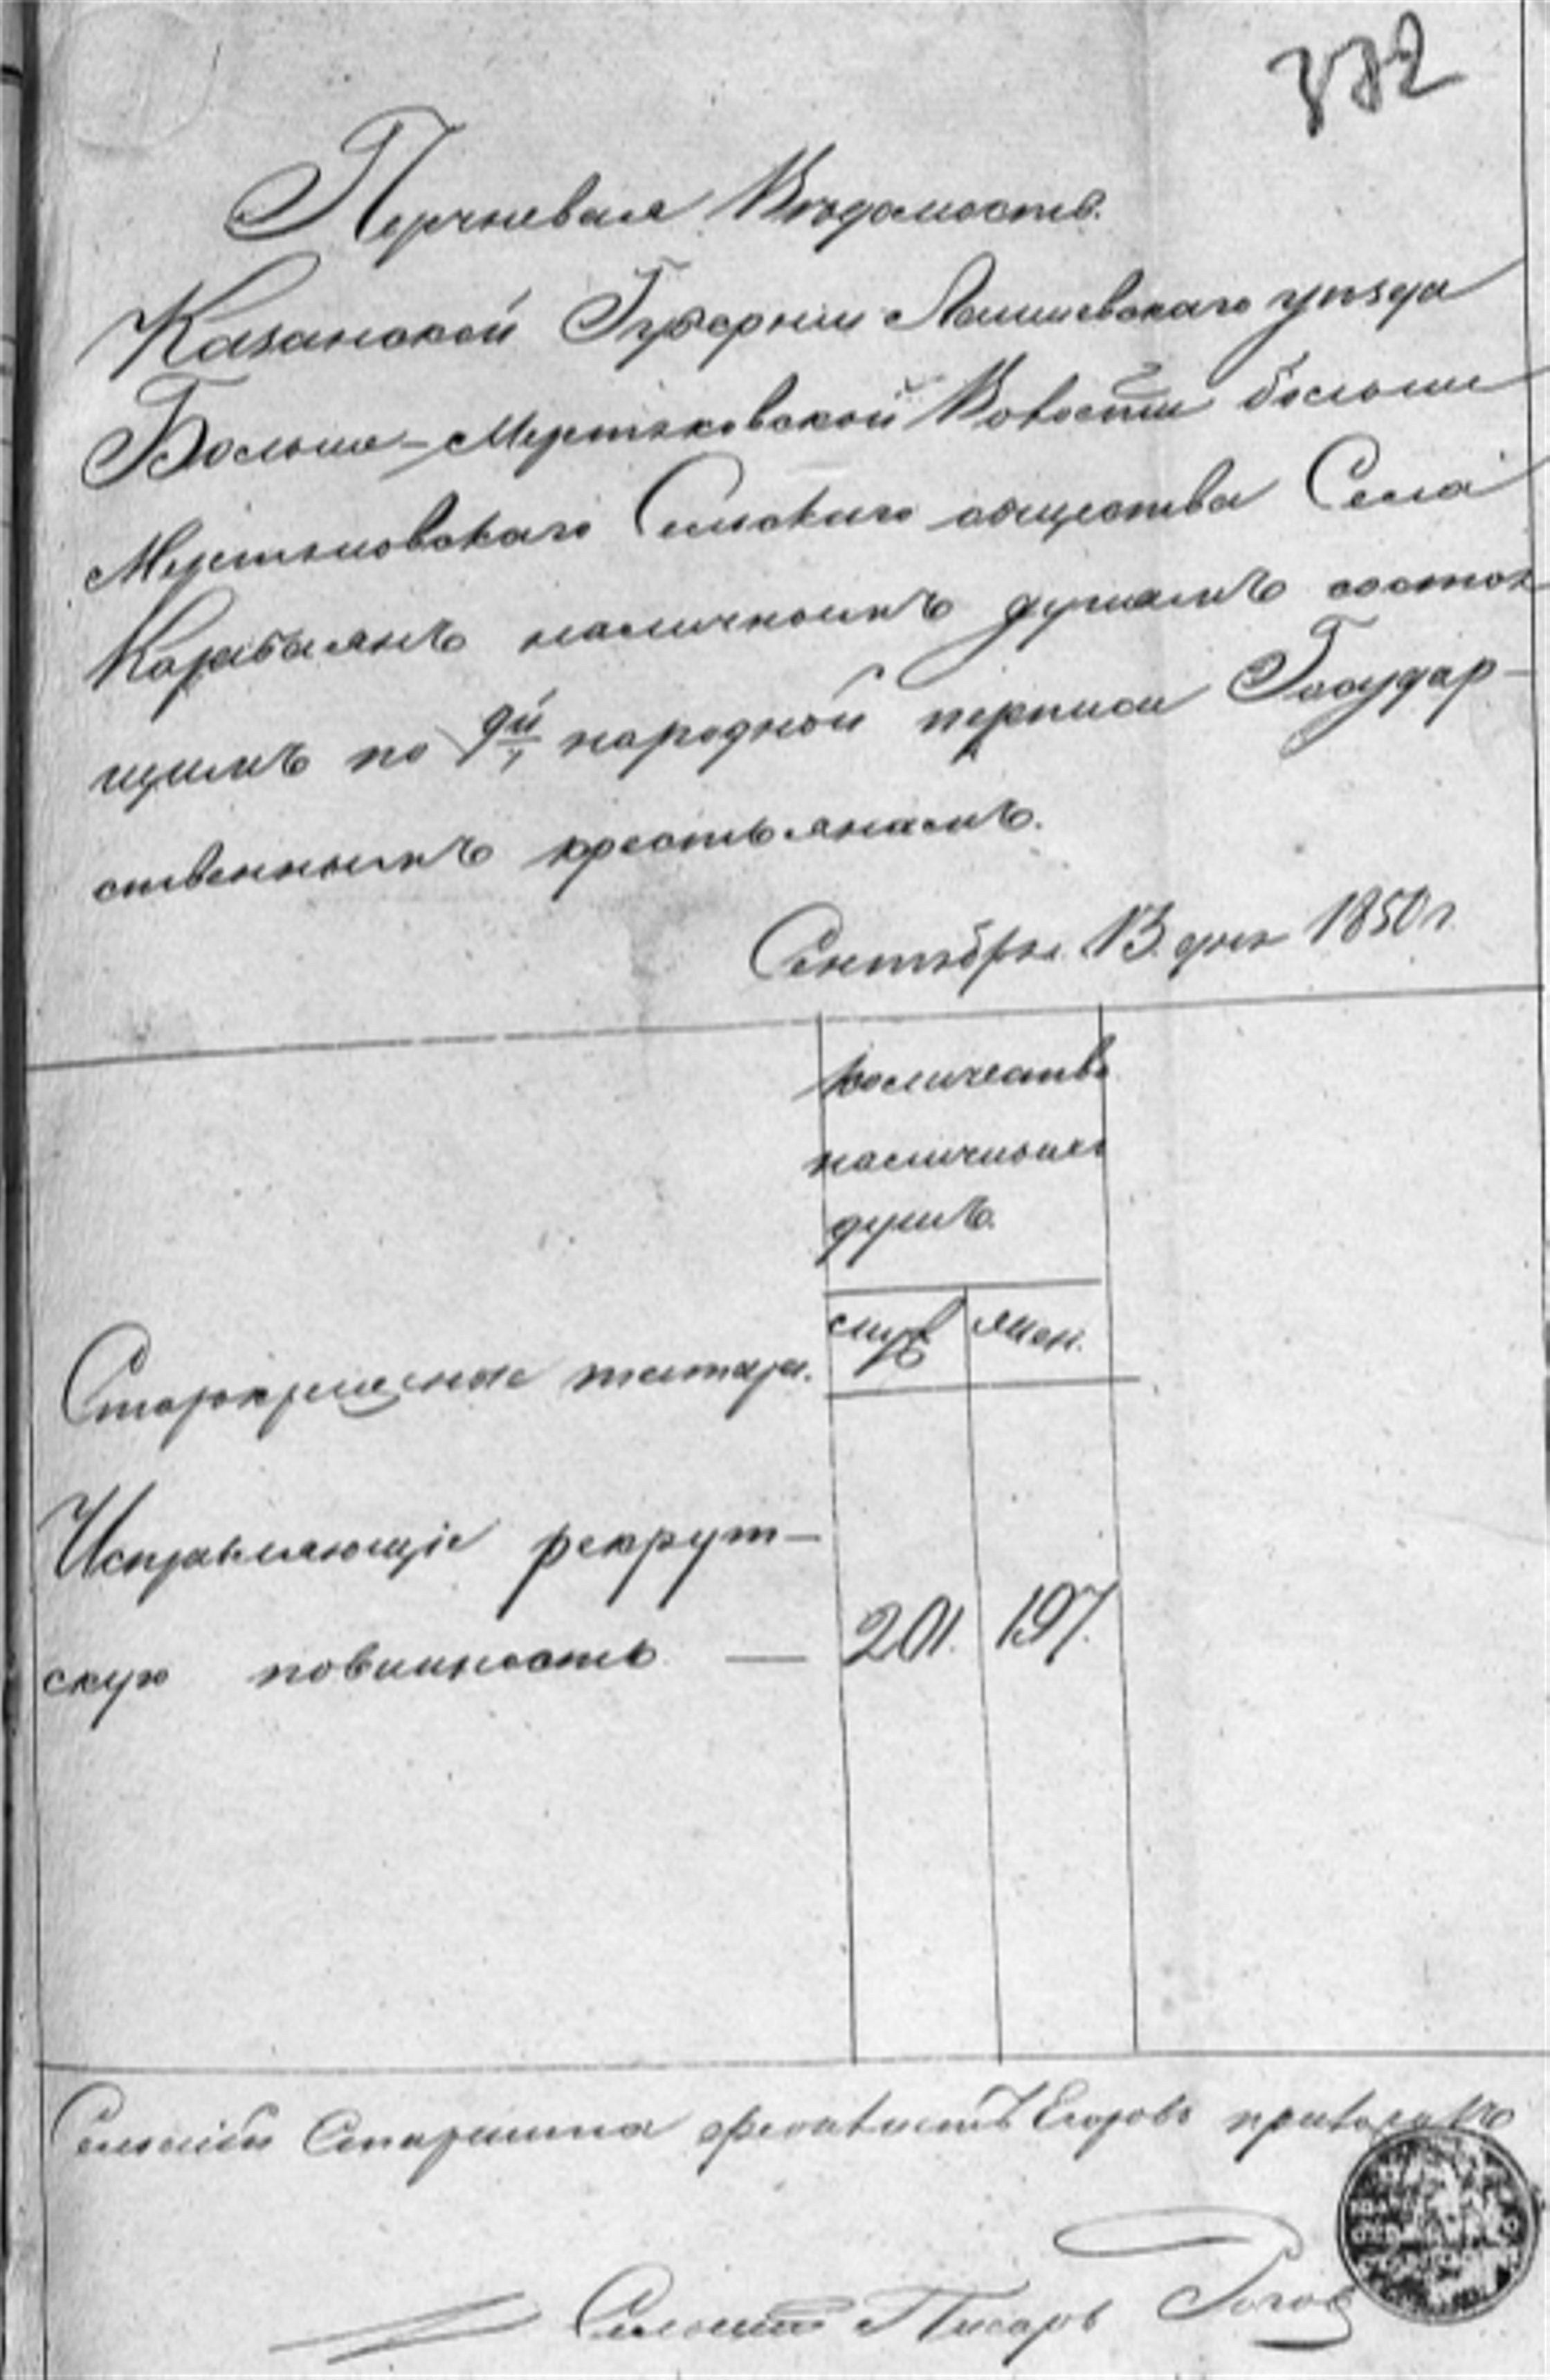 372
Перчневая Вѣдомость.
Казанской Губерніи Лаишевскаго уѣзда
Больше-Мертяковской Волости больше
Мертяковскаго Сельскаго общества Села
Карабаянъ наличнымъ душамъ состоя-
щимъ по 9й народной переписи Государ-
ственнымъ крестьянамъ.
Сентября 13 дня 1850 г.
количество
наличныхъ
душъ.
муж жен.
Старокрещеные татары.
Исправляющіе рекрут-
скую повинность — 201. 197.
Сельскій Старшина Феоктистъ Егоровъ приложилъ
Сельскій Писарь